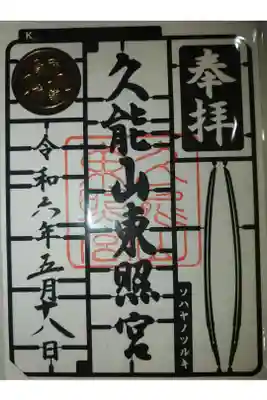 K
奉拝
久能山東照宮
ソハヤノツルキ
令和六年五月十八日